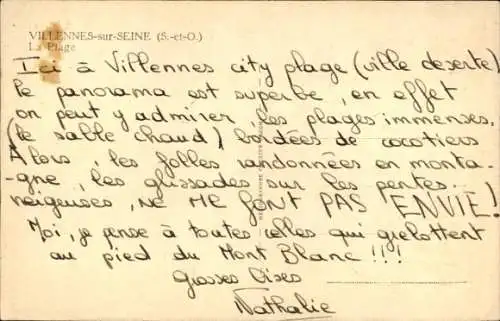 VILLENNES-sur-SEINE (S.-et-O.)
La Plage
Ici à Villennes city plage (ville deserte)
le panorama est superbe, en effet
on peut y admirer, les plages immenses,
(le sable chaud) bordées de cocotiers
Alors, les folles randonnées en monta-
-gne, les glissades sur les pentes...
neigeuses, NE ME FONT PAS ENVIE!)
Moi, je pense à toutes celles qui grelottent
au pied du Mont Blanc !!!
Grosses Bises
Nathalie